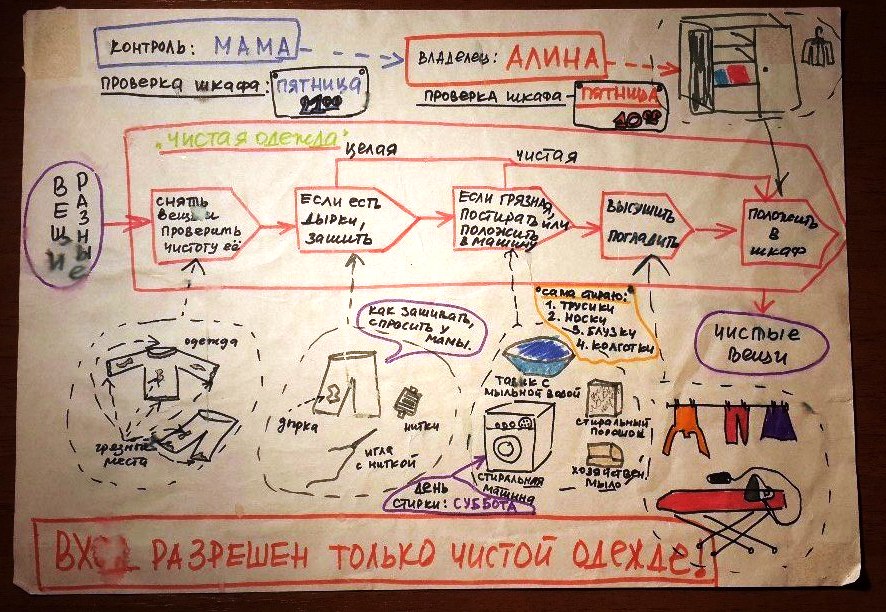 КОНТРОЛЬ: МАМА
ВЛАДЕЛЕЦ: АЛИНА
ПРОВЕРКА ШКАФА:
ПЯТНИЦА
ПРОВЕРКА ШКАФА –
ПЯТНИЦА
"ЧИСТАЯ ОДЕЖДА"
ЦЕЛАЯ
ЧИСТАЯ
РАЗНЫЕ
ВЕЩИ
СНЯТЬ
ВЕЩЬ И
ПРОВЕРИТЬ
ЧИСТОТУ ЕЁ.
ЕСЛИ ЕСТЬ
ДЫРКИ,
ЗАШИТЬ
ЕСЛИ ГРЯЗНАЯ,
ПОСТИРАТЬ ИЛИ
ПОЛОЖИТЬ
В МАШИНУ
ВЫСУШИТЬ
ПОГЛАДИТЬ
ПОЛОЖИТЬ
В
ШКАФ
ЧИСТЫЕ
ВЕЩИ
ОДЕЖДА
ГРЯЗНЫЕ
МЕСТА
КАК ЗАШИВАТЬ,
СПРОСИТЬ У
МАМЫ.
ДЫРКА
НИТКИ
ИГЛА
С НИТКОЙ
САМА СТИРАЮ:
1. ТРУСИКИ
2. НОСКИ
3. БЛУЗКУ
4. КОЛГОТКИ
ТАЗИК С
МЫЛЬНОЙ ВОДОЙ
СТИРАЛЬНЫЙ
ПОРОШОК
СТИРАЛЬНАЯ
МАШИНА
ХОЗЯЙСТВЕН.
МЫЛО
ДЕНЬ
СТИРКИ: СУББОТА
ВХОД РАЗРЕШЕН ТОЛЬКО ЧИСТОЙ ОДЕЖДЕ!